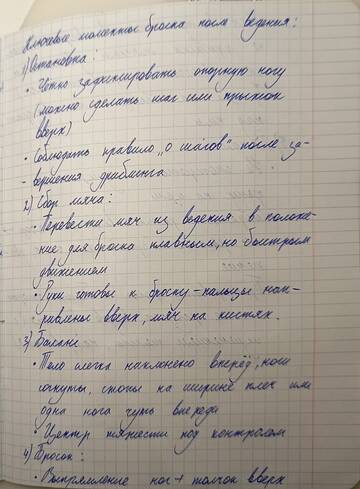 Ключевые моменты броска после ведения:
1) Остановка
• Чётко зафиксировать опорную ногу
(можно сделать шаг или прыжок
вверх)
• Соблюдать правило „0 шагов" после за-
- вершения дриблинга
2) Сбор мяча:
• Перевести мяч из ведения в положе-
ние для броска плавным, но быстрым
движением
• Руки готовы к броску - пальцы нап-
равлены вверх, мяч на кистях.
3) Баланс
• Тело слегка наклонено вперёд, ноги
согнуты, стопы на ширине плеч или
одна нога чуть впереди
• Центр тяжести под контролем
4) Бросок:
• Выпрямление ног + толчок вверх